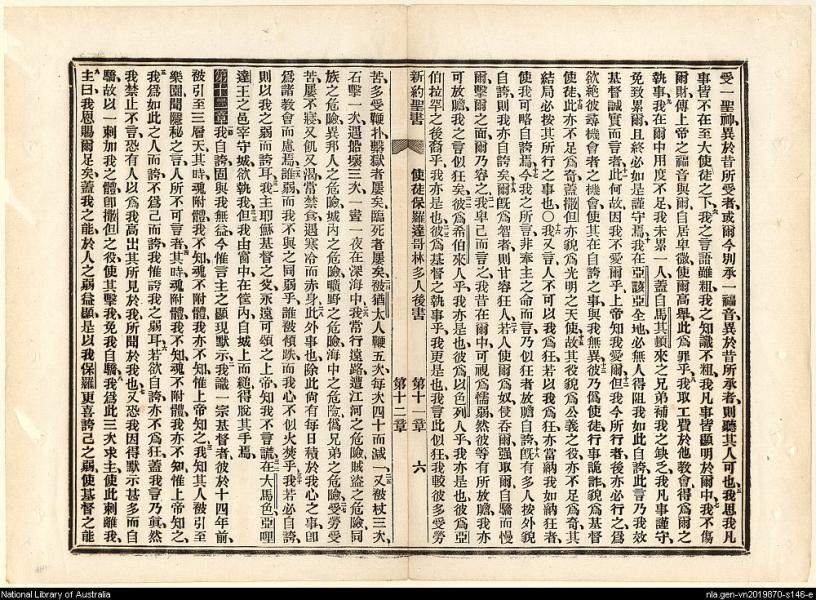 受一聖神、異於昔所受者、或爾今別承一福音、異於昔所承者、則聽其人可也、我思我凡
事皆不在至大使徒之下、我之言語雖粗、我之知識不粗、我凡事皆顯明於爾中、我不傷
爾財、傳上帝之福音與爾、自居卑微、使爾高舉、此爲罪乎、我取工費於他敎會、得爲爾之
執事、我在爾中用度不足、我未累一人、蓋自馬其頓來之兄弟、補我之缺乏、我凡事謹守、
免致累爾、且終必如是謹守焉、我在亞該亞全地、必無人得阻我如此自誇、此言乃我效
基督誠實而言者、此何故、因我不愛爾乎、上帝知我愛爾、但我今所行者、後亦必行之、爲
欲絶彼尋機會者之機會、使其在自誇之事、與我無異、彼乃僞使徒、行事詭詐、貌爲基督
使徒、此亦不足爲奇、蓋撒但亦貌爲光明之天使、故其役貌爲公義之役、亦不足爲奇、其
結局必按其所行之事也○我又言人不可以我爲狂、若以我爲狂、亦當納我如納狂者、
使我可略自誇焉、今我之所言、非奉主之命而言、乃似狂者放膽自誇、旣有多人按外貌
自誇、則我亦自誇矣、爾旣爲智者、則甘容狂人、若人使爾爲奴、侵呑爾、强取爾、自驕而慢
爾、擊爾之面、爾乃容之、我卑己而言之、我昔在爾中、可視爲懦弱、然彼等有所放膽、我亦
可放膽、我之言似狂矣、彼爲希伯來人乎、我亦是也、彼爲以色列人乎、我亦是也、彼爲亞
伯拉罕之後裔乎、我亦是也、彼爲基督之執事乎、我更是也、我言此似狂、我較彼多受勞
新約聖書 使徒保羅達哥林多人後書 第十一章 第十二章 六
苦、多受鞭扑、繫獄者屢矣、臨死者屢矣、被猶太人鞭五次、每次四十而減一、又被杖三次、
石擊一次、遇船壞三次、一晝一夜在深海中、我常行遠路、遭江河之危險、賊盜之危險、同
族之危險、異邦人之危險、城內之危險、曠野之危險、海中之危險、僞兄弟之危險、受勞受
苦、屢不寢、又飢又渴、當禁食、遇寒冷而赤身、此外事也、除此尙有每日積於我心之事、卽
爲諸敎會而慮焉、誰弱而我不與之同弱乎、誰被傾跌而我心不似火焚乎、我若必自誇、
則以我之弱而誇耳、我主耶穌基督之父、永遠可頌之上帝、知我不言謊、在大馬色亞哩
達王之邑宰守城欲執我、但我由窗中在筐內自城上而縋、得脫其手焉、
第十二章 我自誇固與我無益、今惟言主之顯現默示、我識一宗基督者、彼於十四年前、
被引至三層天、其時魂附體、我不知、魂不附體、我亦不知、惟上帝知之、我知其人被引至
樂園、聞隱秘之言、人所不可言者、其時魂附體、我不知、魂不附體、我亦不知、惟上帝知之、
我爲如此之人而誇、不爲己而誇、我惟誇我之弱耳、若欲自誇、亦不爲狂、蓋我言乃眞、然
我禁止不言、恐有人以爲我高出其所見於我所聞於我也、又恐我因得默示甚多而自
驕、故以一刺加我之體、卽撒但之役、使其擊我、免我自驕、我爲此三次求主、使此刺離我、
主曰我恩賜爾足矣、蓋我之能、於人之弱益顯、是以我保羅更喜誇己之弱、使基督之能
National Library of Australia
nla.gen-vn2019870-s146-e